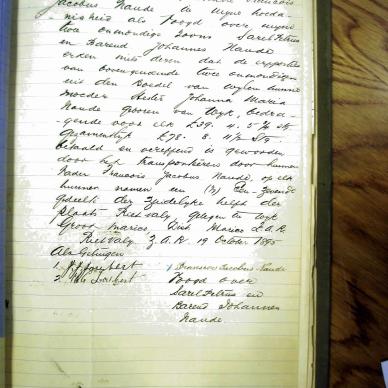 Jacobus Naude in mijne hoeda-
nigheid als Voogd over mijne
twee onmondige zoons Sarel Petrus
en Barend Johannes Naude
erken mits dezen dat de erfportie
van bovengemelde twee onmondigen
uit den Boedel van wijlen hunne
moeder Hester Johanna Maria
Naude geboren van Wyk, bedra-
gende voor elk £39. 4. 5¾ stg
gezamentlyk £78. 8. 11½ Stg.
betaald en vereffend is geworden
door het transporteren door hunnen
Vader Francois Jacobus Naude, op elk
hunner namen een (1/7) Een Zevende
gedeelte der Zuidelyke helft der
plaats Rietvaly, gelegen te wyk
Groot Marico, Dist Marico Z.A.R.
Rietvaly Z.A.R. 19 October 1895
Als Getuigen
1. Joubert Francois Jacobus Naude
2. Joubert Voogd over
Sarel Petrus en
Barend Johannes
Naude